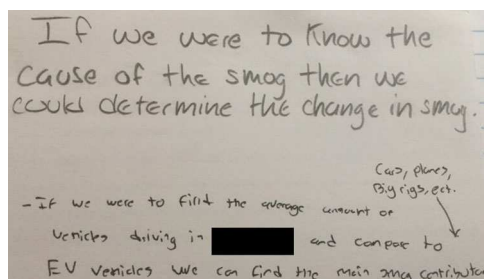 If we were to Know the
cause of the smog then we
could determine the change in smog.
Cars, planes,
Big rigs, ect.
- If we were to find the average amount of
vehicles driving in and compare to
EV vehicles we can find the main smog contributor